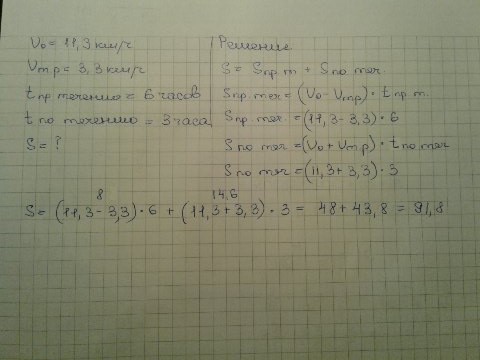 V₀ = 11,3 км/ч
Vтр = 3,3 км/ч
t пр течению = 6 часов
t по течению = 3 часа
S = ?
Решение
S = Sпр.т + Sпо теч.
Sпр. теч = (V₀ - Vтр) · tпр.т.
Sпр. теч. = (11,3 - 3,3) · 6
Sпо теч = (V₀ + Vтр) · tпо теч
Sпо теч = (11,3 + 3,3) · 3
8 14,6
S = (11,3 - 3,3) · 6 + (11,3 + 3,3) · 3 = 48 + 43,8 = 91,8